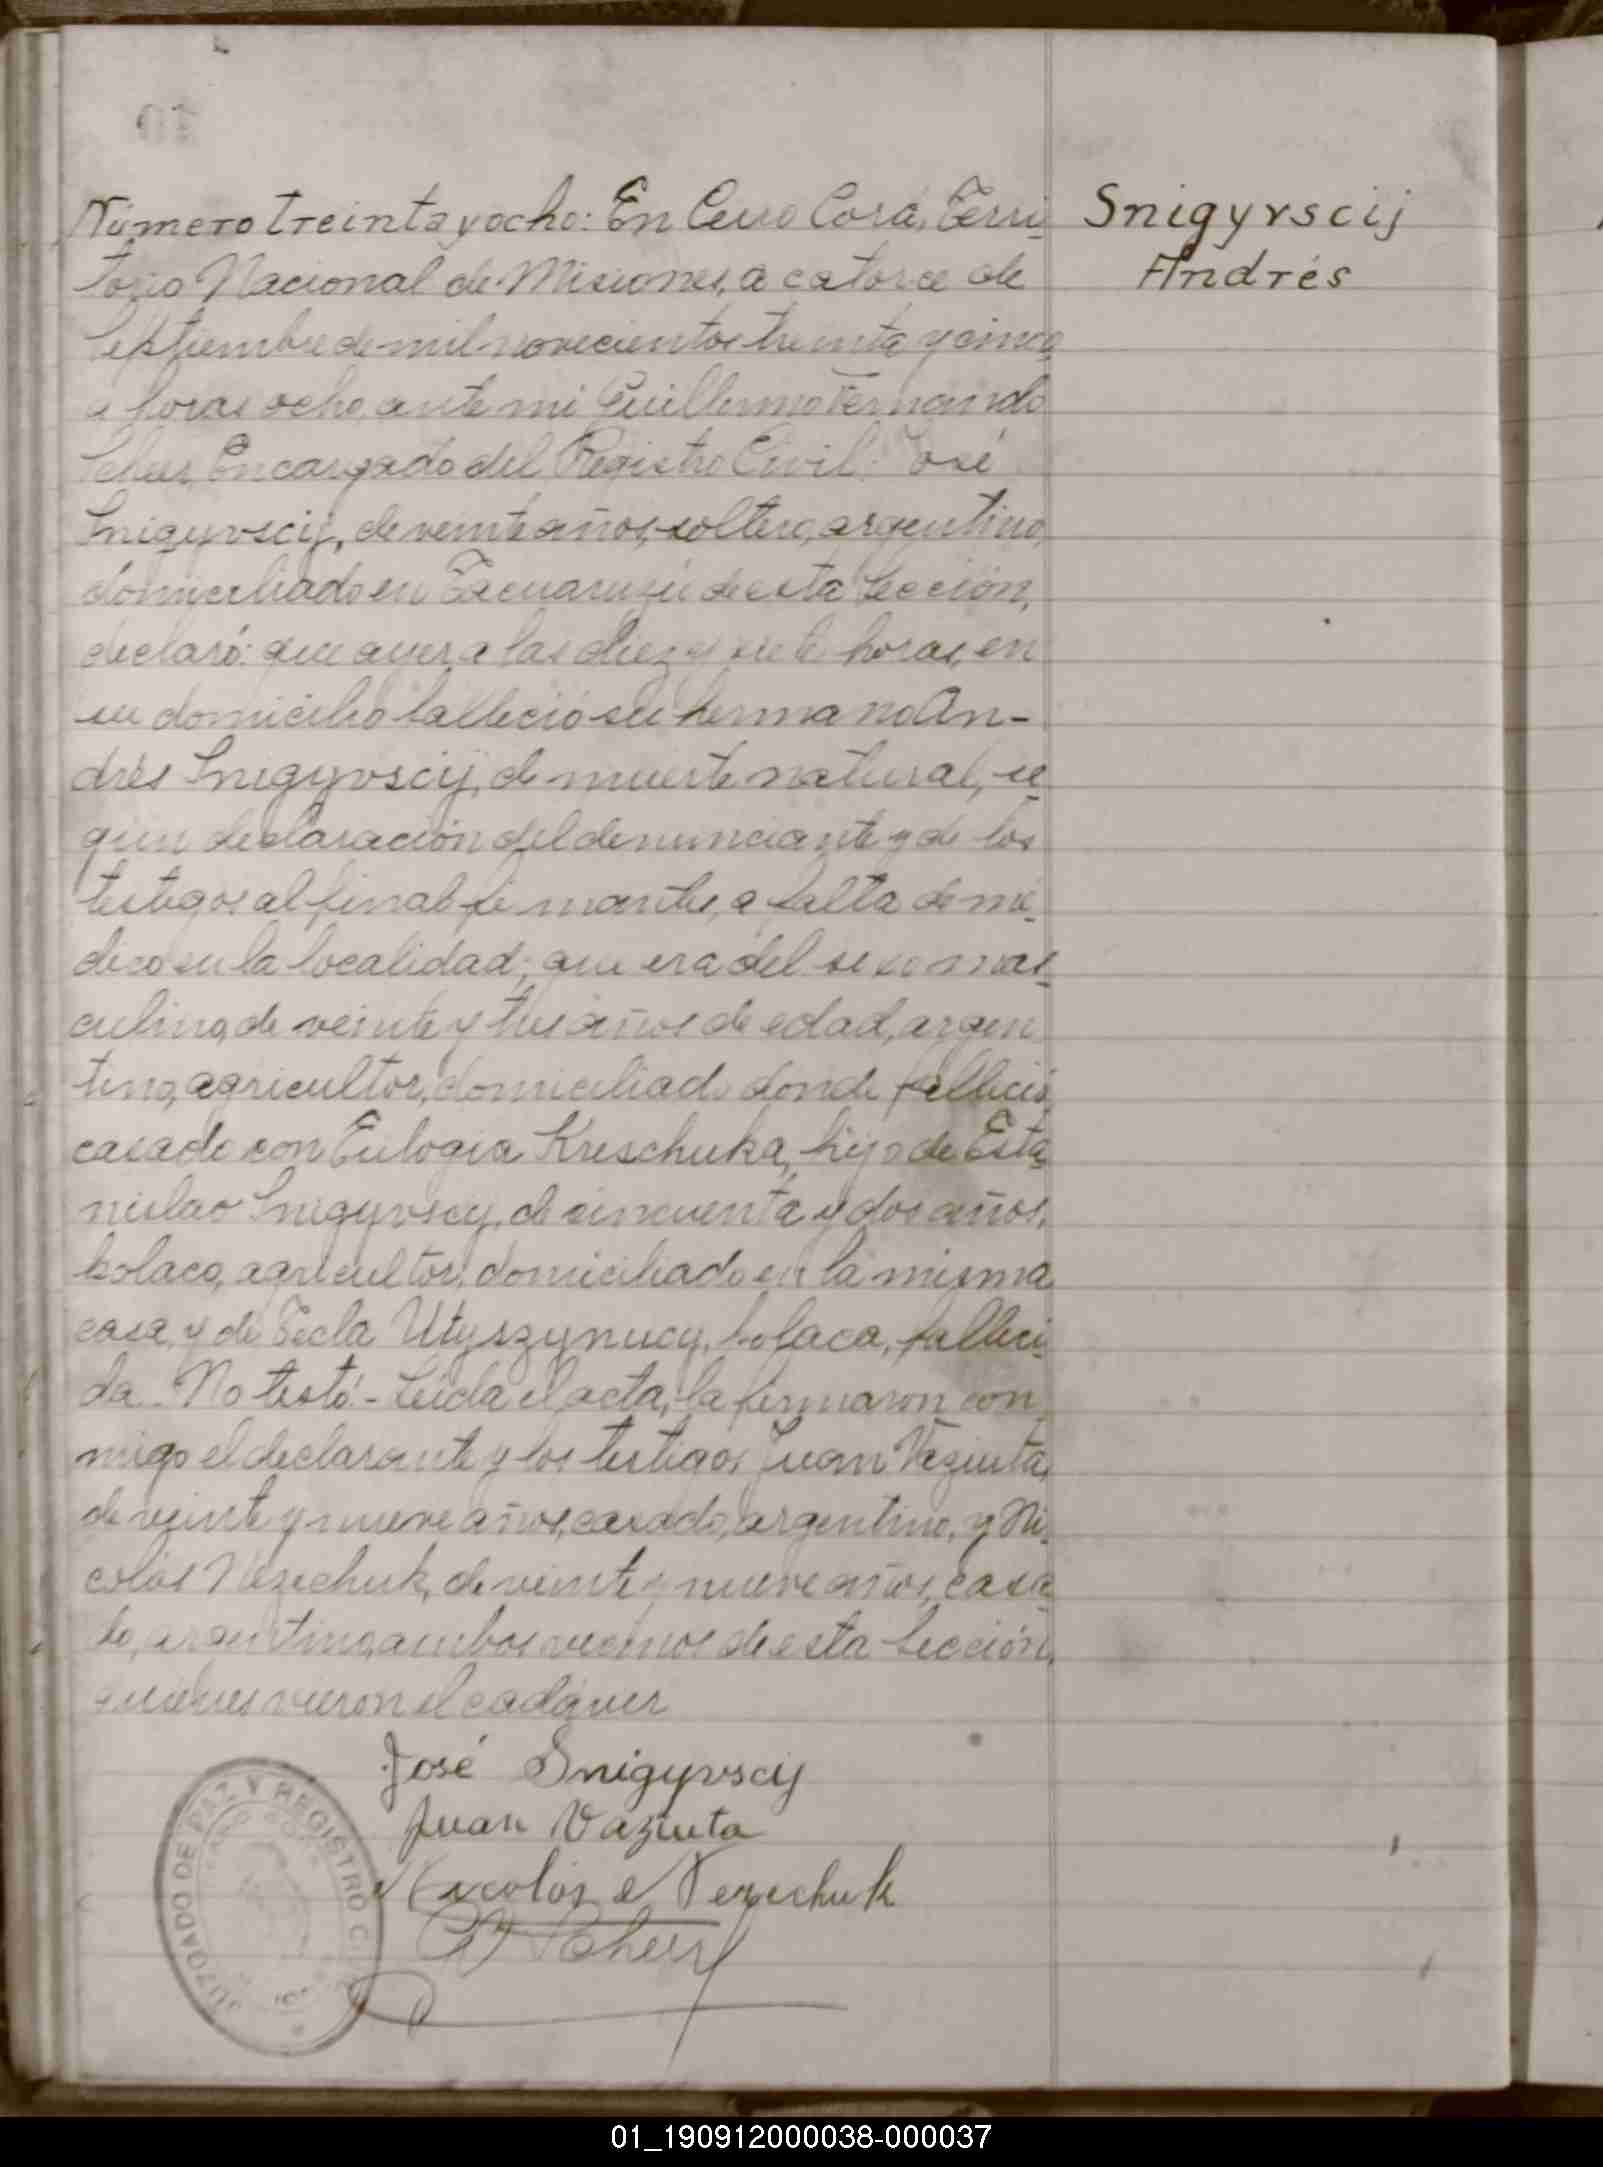 Número treinta y ocho: En Cerro Corá, Terri-
torio Nacional de Misiones, a catorce de
Septiembre de mil novecientos treinta y cinco
a horas ocho, ante mi Guillermo Fernando
Scheer Encargado del Registro Civil: José
Snigyvscij, de veinte años, soltero, argentino,
domiciliado en Tacuaruzú de esta Sección,
declaró: que ayer a las diez y siete horas, en
su domicilio falleció su hermano An-
drés Snigyvscij, de muerte natural, se-
gún declaración del denunciante y de los
testigos al final firmantes, a falta de mé-
dico en la localidad; que era del sexo mas-
culino, de veinte y tres años de edad, argen
tino, agricultor, domiciliado donde falleció
casado con Eulogia Kreschuka, hijo de Esta-
nislao Snigyvscij, de cincuenta y dos años,
polaco, agricultor, domiciliado en la misma
casa, y de Tecla Utyszynucy, polaca, falleci-
da. No testó.- Leída el acta, la firmaron con
migo el declarante y los testigos Juan Vaziuta,
de veinte y nueve años, casado, argentino, y Ni-
colás Nezechuk, de veinte y nueve años, casa-
do, argentino, ambos vecinos de esta Sección,
quienes vieron el cadáver
José Snigyvscij
Juan Vaziuta
Nicolás Nezechuk
Scheer
Snigyvscij
Andrés
JUZGADO DE PAZ Y REGISTRO C
01_190912000038-000037